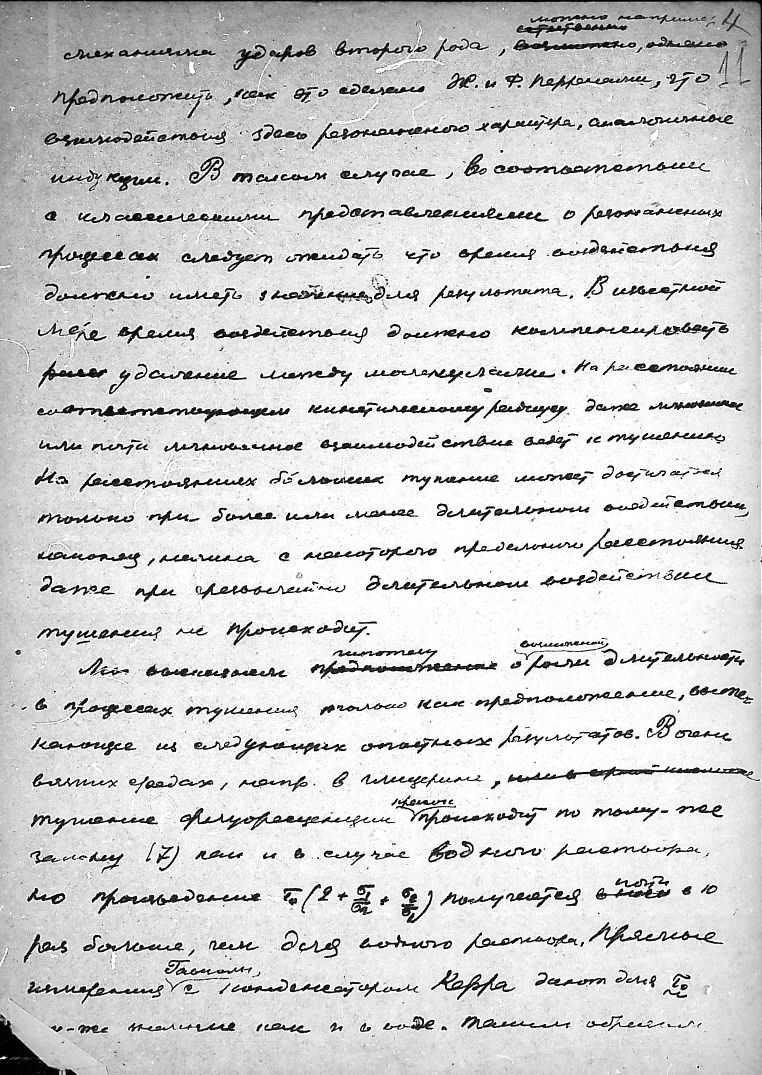 можно например 4
механизма ударов второго рода, естественно возможно, однако
11
предположить, как это сделано Ж. и Ф. Перренами, что
взаимодействия здесь резонансного характера, аналогичные
индукции. В таком случае, в соответствии
с классическими представлениями о резонансных
процессах следует ожидать что время воздействия
должно иметь значение для результата. В известной
мере время воздействия должно компенсировать
удаление между молекулами. На расстоянии
соответствующем кинетическому радиусу даже мгновенное
или почти мгновенное взаимодействие ведет к тушению
На расстояниях больших тушение может достигаться
только при более или менее длительном воздействии,
наконец, начиная с некоторого предельного расстояния
даже при чрезвычайно длительном воздействии
тушения не происходит.
гипотезу
Мы высказали предположение о роли длительности
в процессах тушения только как предположение, выте-
кающее из следующих опытных результатов. В очень
вязких средах, напр. в глицерине, или в серной кислоте
тушение флуоресценции происходит по тому-же
закону (7) как и в случае водного раствора,
почти
но произведение τ₀ (2 + σ₁/σ₂ + σ₂/σ₁) получается в 10
раз больше, чем для водного раствора. Прямые
Гавиолы,
измерения с конденсатором Керра дают для τ₀
то-же значение как и в воде. Таким образом